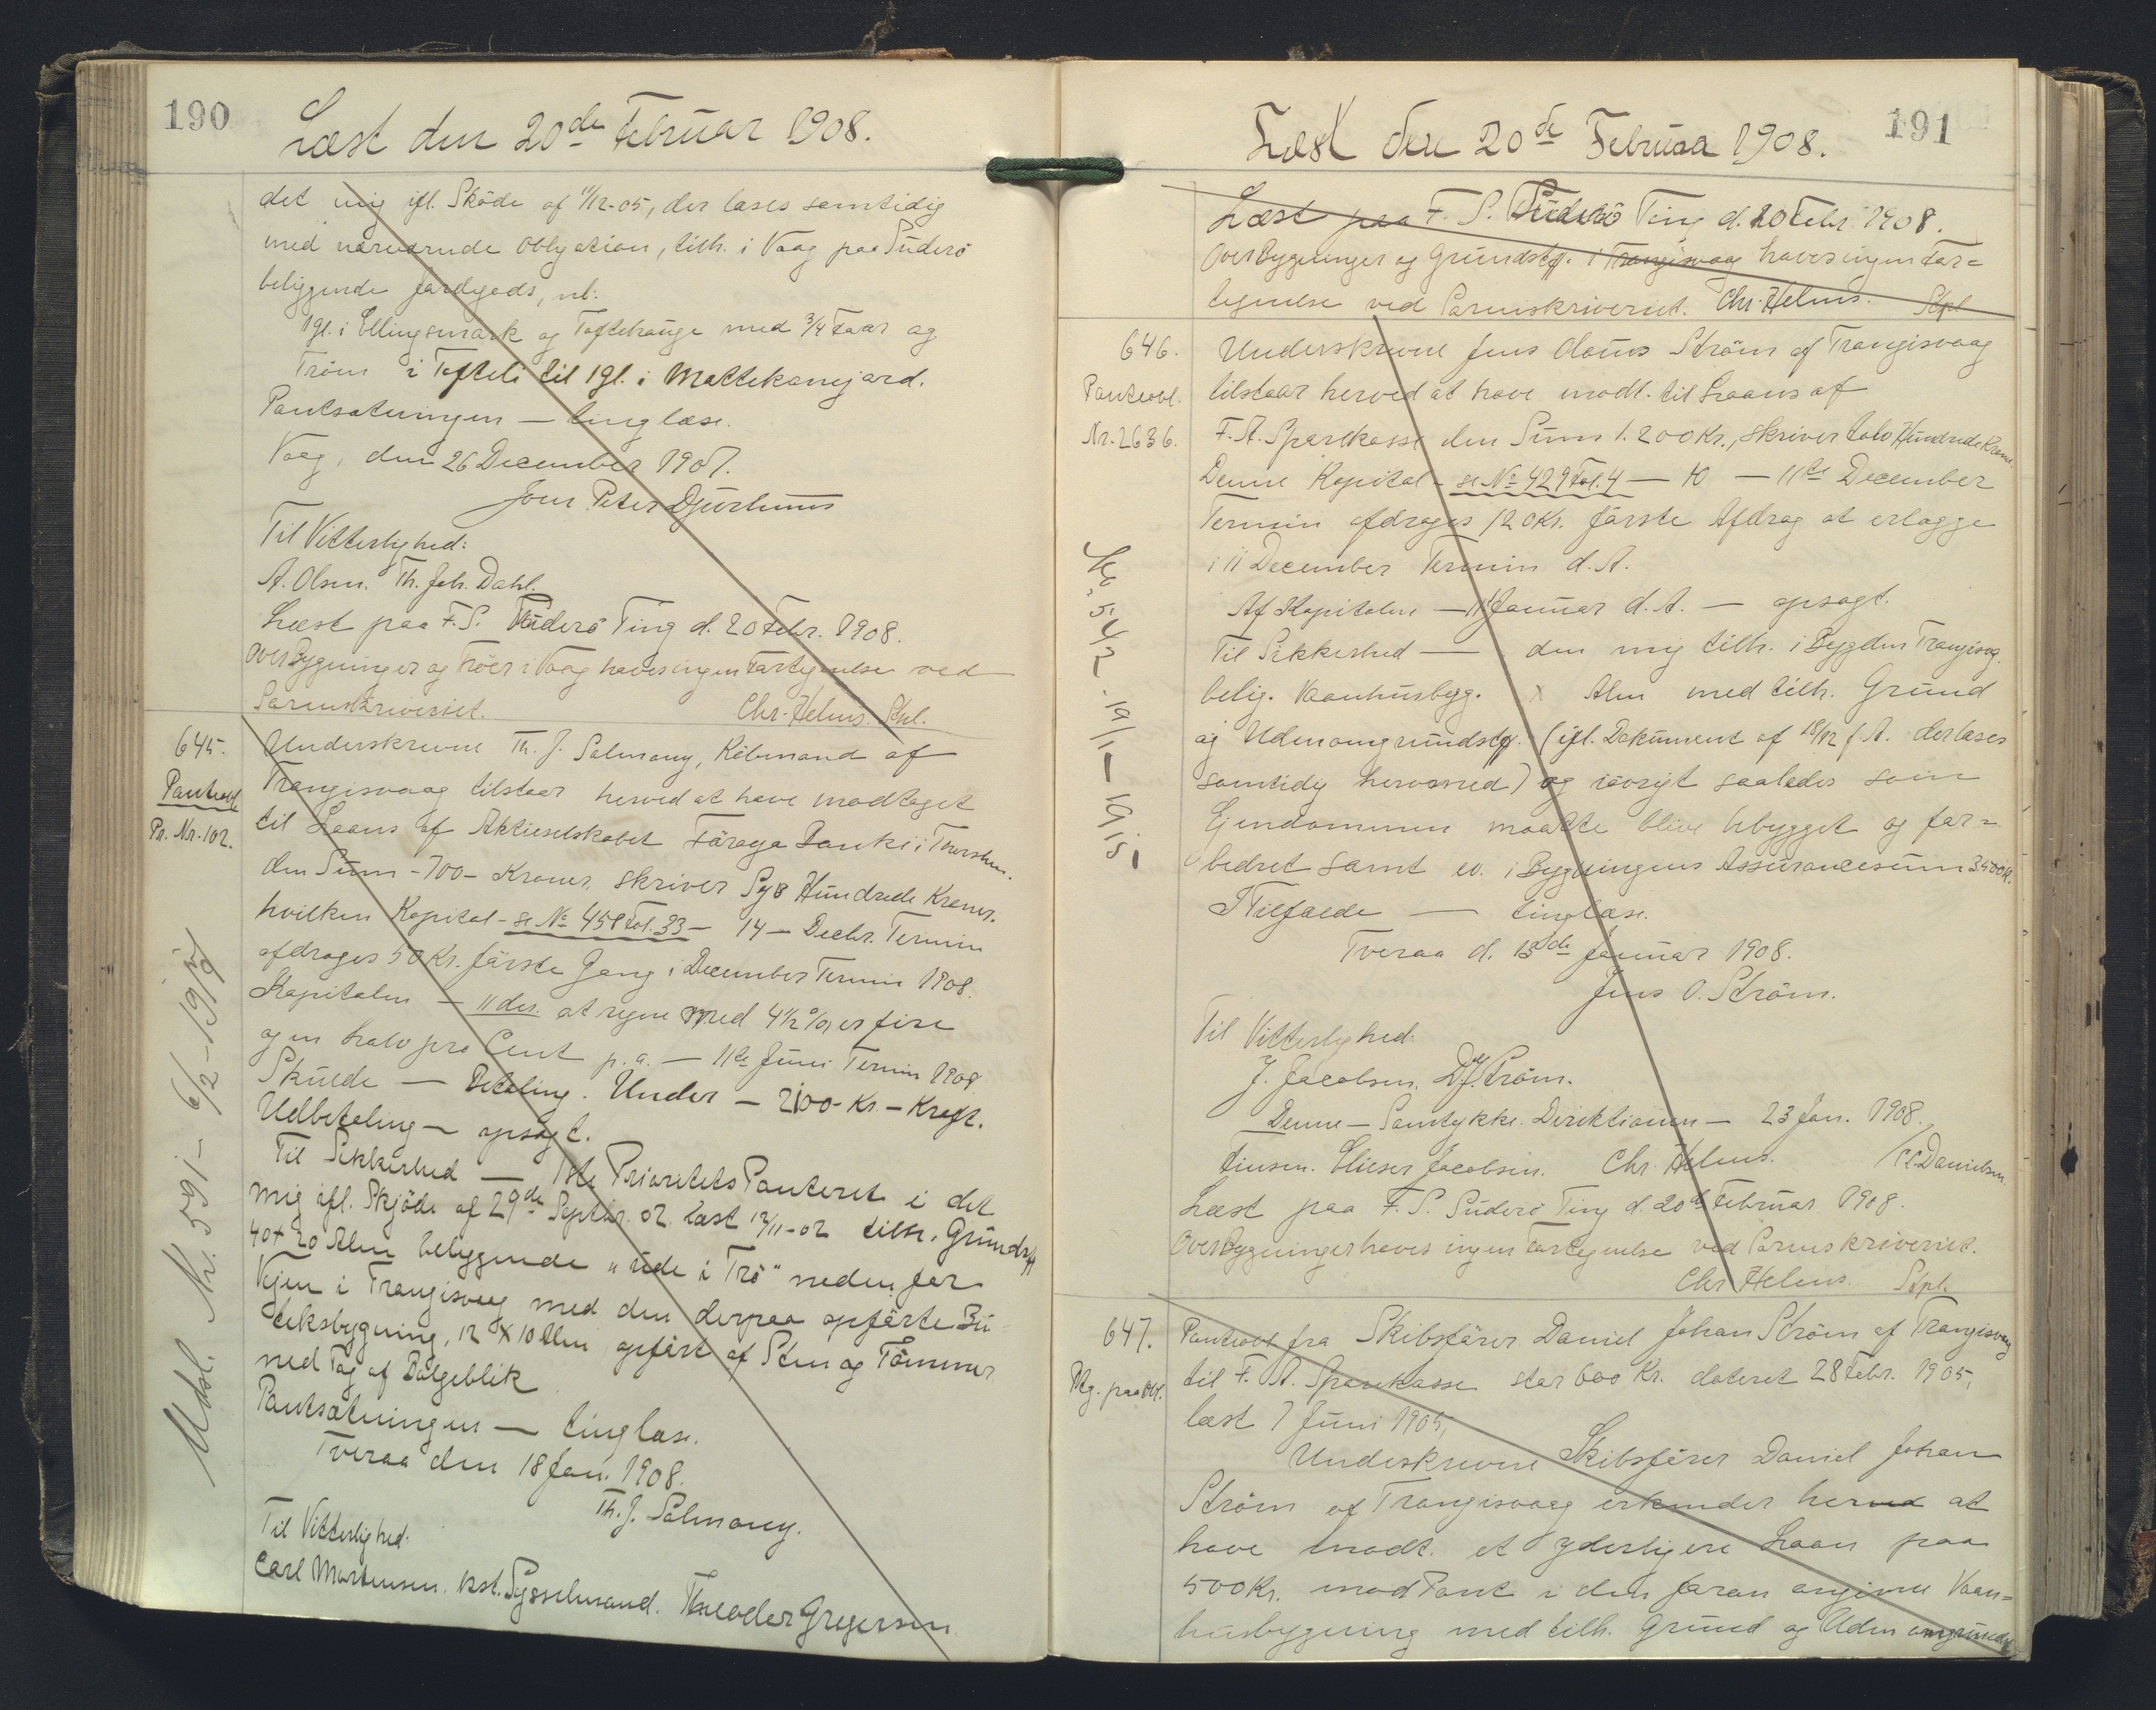 190
Læst den 20de Februar 1908.
det mig ifl. Sköde af 11/12-05, der læses samtidig
med nærværende Obligation, tilh. i Vaag paa Suderö
beliggende Jordegods, nl:
1 gl. i Ellingsmark og Toftehauge med 3/4 Faar og
Tröm i Tofteli til 1 gl. i
Pantsætningen — tinglæse.
Vaag, den 26 December 1907.
Joen Peter Djurhuus
Til Vitterlighed:
A. Olsen. Th. Joh. Dahl.
Læst paa F. S. Suderö Ting d. 20 Febr. 1908.
Over Bygninger og Tröer i Vaag haves ingen Fortegnelse ved
Sorenskriveriet. Chr. Helms. Stpl.
645.
Panteobl
Pr. Nr. 102.
Underskrevne Th. J. Salmony, Köbmand af
Trangisvaag tilstaar herved at have modtaget
til Laans af Aktieselskabet Färöya Banki i Thorshvn.
den Sum - 700 - Kroner, skriver Syv Hundrede Kroner.
hvilken Kapital - se No 458 Fol. 33 - 14 - Decbr. Termin
afdrages 50 Kr. förste Gang i December Termin 1908.
Kapitalen - 11 des. at regne med 4 1/2 % er fire
og en halv pro Cent p. a. - 11te Juni Termin 1908
Skulde — Betaling. Under - 2100 - Kr - Kraft.
Udbetaling - opsagt.
Til Sikkerhed — 1ste Prioritets Panteret i det
mig ifl. Skjöde af 29de Septbr. 02. læst 12/11-02 tilh. Grundst
40 + 20 Alen beliggende "ude i Trö" nedenfor
Vejen i Trangisvaag med den derpaa opförte Bu-
tiksbygning, 12 X 10 Alen opfört af Sten og Tömmer
med Tag af Bölgeblik
Pantsætningen — tinglæse.
Tveraa den 18 Jan. 1908.
Th. J. Salmony.
Til Vitterlighed:
Carl Mortensen. kst. Sysselmand. Theodor Gregersen.
Udsl. Nr. 591 - 6/2 - 1917
191
Læst den 20de Februa 1908.
Læst paa F. S. Suderö Ting d. 20 Febr. 1908.
Over Bygninger og Grundstyk. i Trangisvaag haves ingen For=
tegnelse ved Sorenskriveriet. Chr. Helms. Stpl
646.
Panteobl.
Nr. 2636.
Underskrevne Jens Olaus Ström af Trangisvaag
tilstaar herved at have modt. til Laans af
F. A. Sparekasse den Sum 1.200 Kr., skriver tolv Hundrede Kroner.
Denne Kapital - se No 429 Fol. 4 — 10 — 11te December
Termin afdrages 120 Kr. förste Afdrag at erlægge
i 11 December Termin d. A.
Af Kapitalen — 11 Januar d. A. — opsagt.
Til Sikkerhed — den mig tilh. i Bygden Trangisvg.
belig. Vaanhusbyg. X Alen med tilh. Grund
og Udenomgrundstyk. (ifl. Dokument af 18/12 f. A. der læses
samtidig hermed) og iövrigt saaledes som
Ejendommen maatte blive bebygget og for=
bedret samt ev. i Bygningens Assurancesum 3500 Kr.
I Tilfælde — tinglæse.
Tveraa d. 15de Januar 1908.
Jens O. Ström.
Til Vitterlighed:
J. Jacobsen. D. J. Ström.
Denne - Samtykke. Direktionen - 23 Jan. 1908.
Finsen. Elieser Jacobsen. Chr. Helms. Danielsen.
Læst paa F. S. Suderö Ting d. 20de Februar 1908.
Over Bygninger haves ingen Fortegnelse ved Sorenskriveriet.
Chr. Helms. Stpl.
647.
Pantobl fra Skibsförer Daniel Johan Ström af Trangisvaag
til F. A. Sparekasse stor 600 Kr. dateret 28 Febr. 1905,
læst 7 Juni 1905,
Underskrevne Skibsförer Daniel Johan
Ström af Trangisvaag erkender herved at
have modt. et yderligere Laan paa
500 Kr. mod Pant i den foran angivne Vaan=
husbygning med tilh. Grund og Uden omgrundst